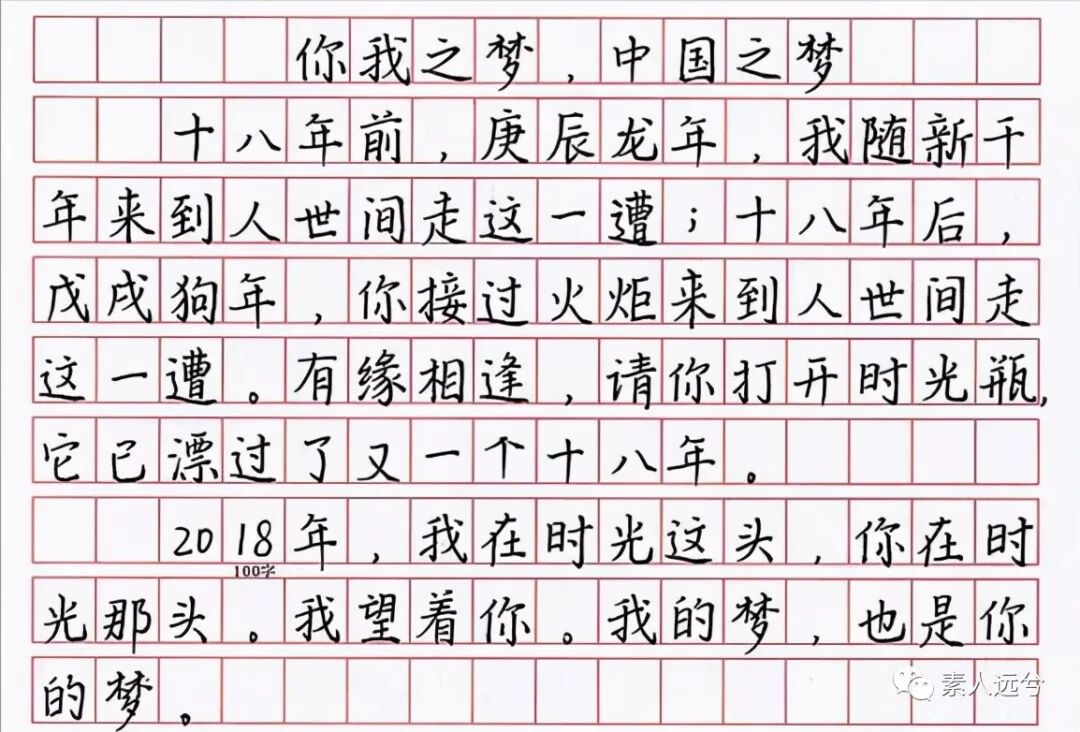 你我之梦，中国之梦
十八年前，庚辰龙年，我随新千
年来到人世间走这一遭；十八年后，
戊戌狗年，你接过火炬来到人世间走
这一遭。有缘相逢，请你打开时光瓶，
它已漂过了又一个十八年。
2018年，我在时光这头，你在时
100字
光那头。我望着你。我的梦，也是你
的梦。
素人远兮